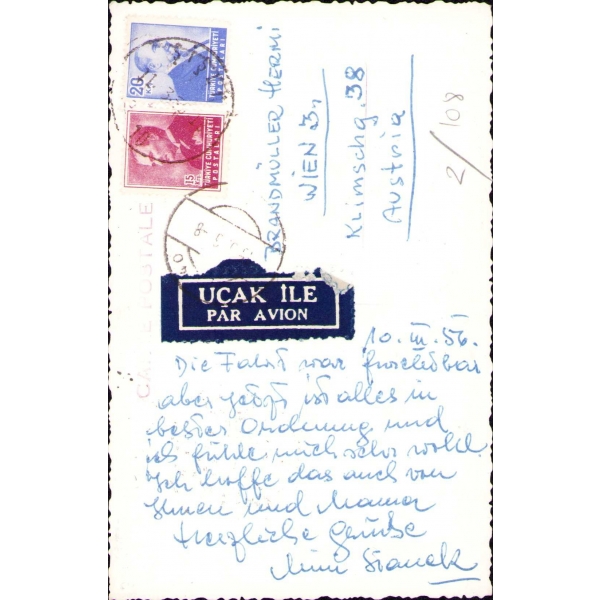 20
TÜRKİYE CUMHURİYETİ
POSTALARI
15
TÜRKİYE CUMHURİYETİ
POSTALARI
BRANDMÜLLER HERMI
WIEN 3.,
Klimschg. 38
Austria
2/108
CARTE POSTALE
UÇAK İLE
PAR AVION
10. III. 56.
Die Fahrt war furchtbar
aber jetzt ist alles in
bester Ordnung und
ich fühle mich sehr wohl.
Ich hoffe das auch von
Ihnen und Mama
Herzliche Grüße
Stanek